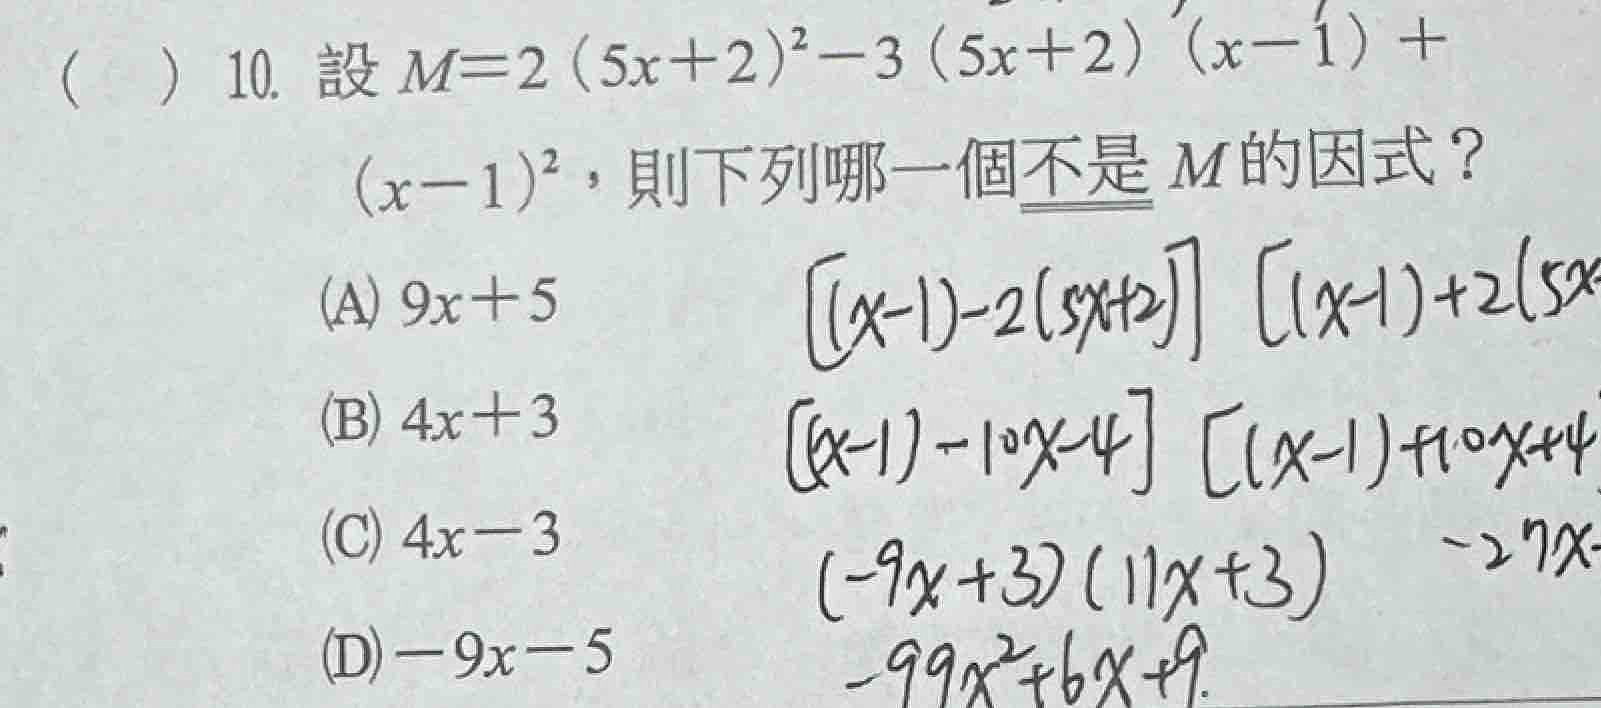 ( ) 10. 設 M=2（5x+2）²-3（5x+2）（x-1）+
（x-1）²，則下列哪一個不是 M 的因式？
(A) 9x+5
[(x-1)-2(5x+2)] [(x-1)+2(5x
(B) 4x+3
[(x-1)-10x-4] [(x-1)+10x+4
(C) 4x-3
(-9x+3)(11x+3) -27x-
(D) -9x-5
-99x²+6x+9.